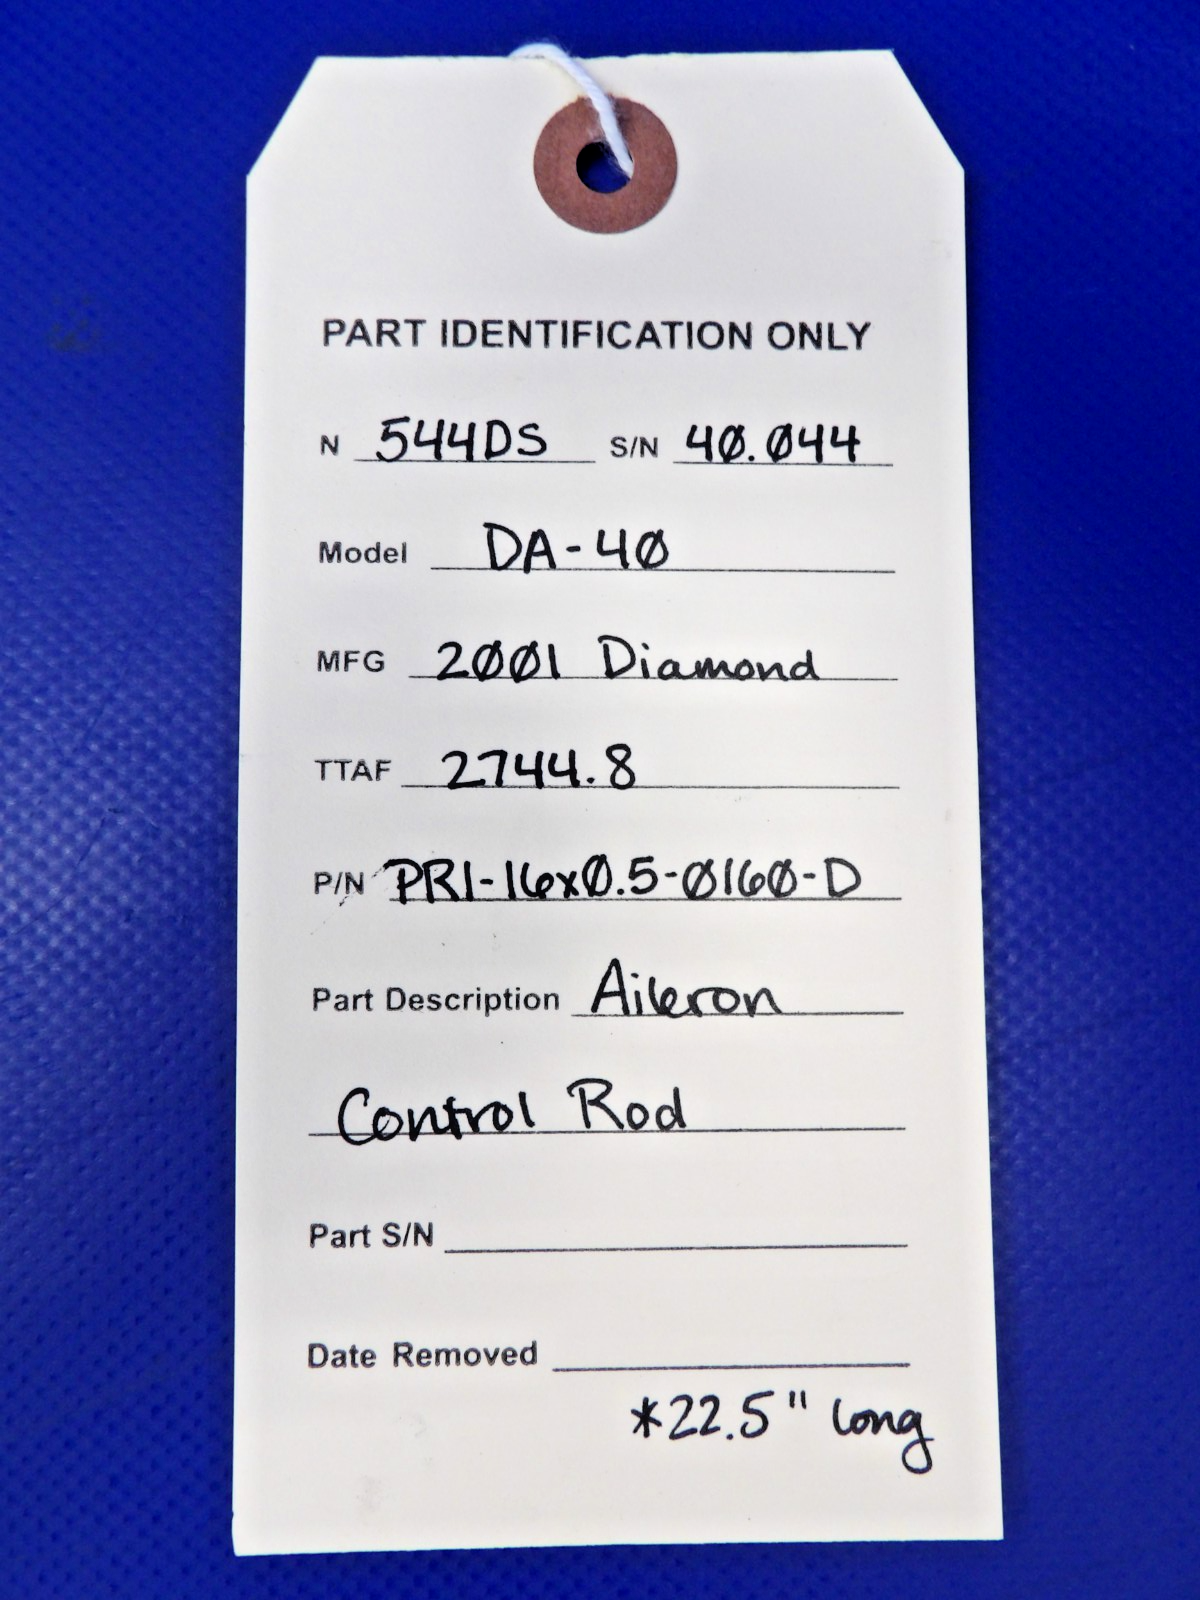 PART IDENTIFICATION ONLY
N 544DS S/N 40.044
Model DA-40
MFG 2001 Diamond
TTAF 2744.8
P/N PR1-16x0.5-0160-D
Part Description Aileron
Control Rod
Part S/N
Date Removed
*22.5" long